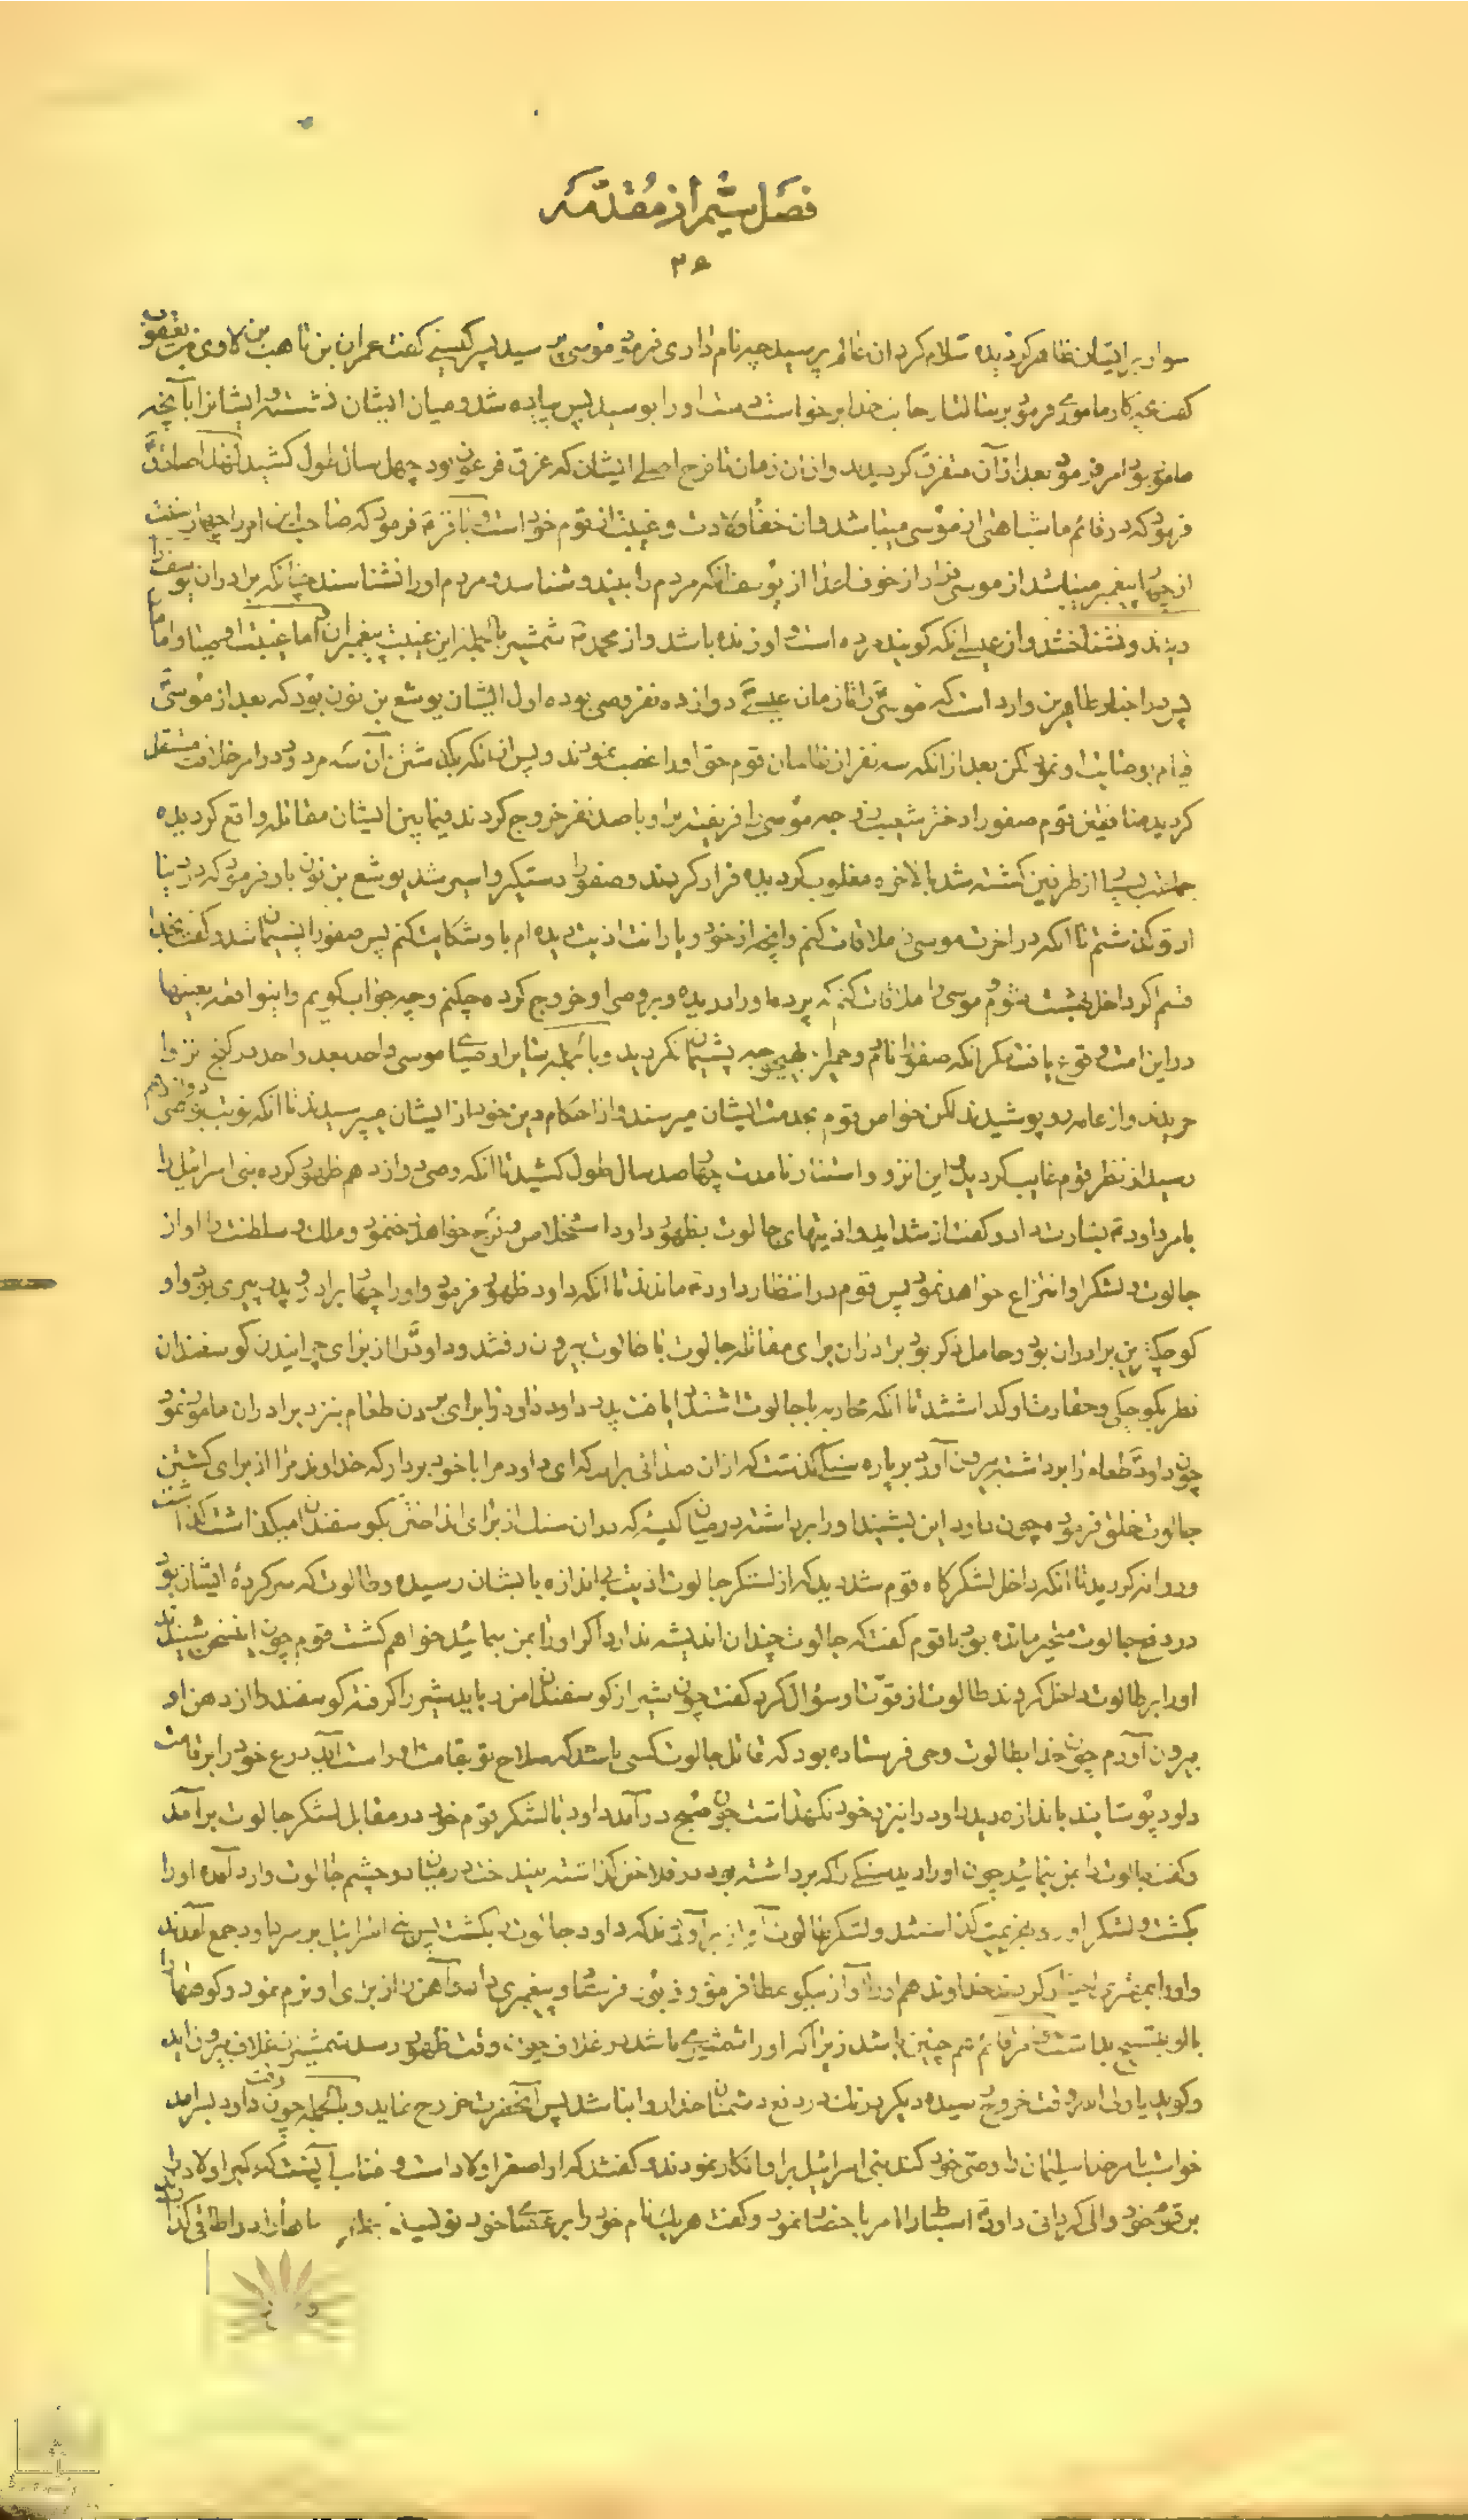 فصل ششم از مقدمه
۳۶
سوار بر ایشان ظاهر گردیده سلام کرد ان عالم پرسید چه نام داری فرمود موسی پرسید پسر کیستی گفت عمران بن قاهب بن لاوی بن یعقوب
گفت بچه کار ماموری فرمود برسالت از جانب خدا برخواست دست او را بوسید پس پیاده شد و میان ایشان نشست و ایشانرا بآنچه
مامور بود امر فرمود بعد از آن متفرق گردیدند و از ان زمان تا فرج اصلی ایشان که غرق فرعون بود چهل سال طول کشید از حضرت صادق
فرمود که در قائم ما شباهتی از موسی میباشد و ان خفاء ولادت و غیبت از قوم خود است و باقر فرمود که صاحب این امر را چهار سنت
از چهار پیغمبر میباشد از موسی فرار از خوف اعدا از یوسف انکه مردم را بیند و شناسد و مردم او را نشناسند چنانکه برادران یوسف را
دیدند و نشناختند و از عیسی انکه گویند مرده است و او زنده باشد و از محمد شمشیر بالجمله این غیبت پیغمبران اما غیبت اوصیا و امامان
پس در اخبار طاهرین وارد است که موسی را تا زمان عیسی دوازده نفر وصی بوده اول ایشان یوشع بن نون بود که بعد از موسی
قیام بوصایت او نمود لکن بعد از انکه سه نفر از ظالمان قوم حق او را غصب نمودند و پس از انکه بگذشتن آن سه مردود در امر خلافت مستقل
گردید منافقین قوم صفورا دختر شعیب زوجه موسی را فریفته بر او با صد نفر خروج کردند فیما بین ایشان مقاتله واقع گردیده
جماعت بسیار از طرفین کشته شد بالاخره مغلوب گردیده فرار کردند و صفورا دستگیر و اسیر شد یوشع بن نون باو فرمود که در دنیا
از تو گذشتم تا انکه در اخرت موسی را ملاقات کنم و انچه از خود و یارانت اذیت دیده ام باو شکایت کنم پس صفورا پشیمان شد و گفت بخدا
قسم اگر داخل بهشت شوم موسی را ملاقات کنم که پرده او را دریده و بر وصی او خروج کرده چکنم و چه جواب گویم و اینواقعه بعینها
در این امت وقوع یافت مگر انکه صفورا نادم و حمیرا بهیچوجه پشیمان نگردید و بالجمله بنابر اوصیای موسی واحد بعد واحد در کنج انزوا
خزیدند و از عامه رو پوشیدند لکن خواص قوم بخدمت ایشان میرسند و از احکام دین خود از ایشان میپرسیدند تا انکه نوبت بوصی دوازدهم
رسید از نظر قوم غایب گردید و این انزوا و استتار تا مدت چهار صد سال طول کشید تا انکه وصی دوازدهم ظهور کرده بنی اسرائیل را
بامر داود بشارت داد و گفت از شداید و اذیتهای جالوت بظهور داود استخلاص و فرج خواهد نمود و ملک و سلطنت را او از
جالوت و لشکر او انتزاع خواهد نمود پس قوم در انتظار داود ماندند تا انکه داود ظهور فرمود و او را چهار برادر و پدر پیری بود و او
کوچکترین برادران بود و حامل ذکر بود برادران برای مقاتله جالوت با طالوت بیرون رفتند و داود را از برای چرانیدن گوسفندان
نظر بکوچکی و حقارت او گذاشتند تا انکه محاربه با جالوت اشتداد یافت پدر داود داود را برای بردن طعام بنزد برادران مامور نمود
چون داود طعام را برداشته بیرون آورد بر پاره سنگی گذشت که از ان صدائی برامد که ای داود مرا با خود بردار که خداوند مرا از برای کشتن
جالوت خلق فرموده چون داود این بشنید او را برداشته در میان کیسه که در ان سنگ از برای انداختن بگوسفندان میگذاشت گذاشت
و روانه گردید تا انکه داخل لشکرگاه قوم شد دید که از لشکر جالوت اذیت بی اندازه بایشان رسیده و طالوت که سرکرده ایشان بود
در دفع جالوت متحیر مانده بود با قوم گفت که جالوت چندان اندیشه ندارد اگر او را بمن بنمائید خواهم کشت قوم چون این سخن شنیدند
او را بر طالوت داخل کردند طالوت از قوت او سؤال کرد گفت چون شیر از گوسفندان من رباید شیر را گرفته گوسفند را از دهن او
بیرون آوردم چون خدا بطالوت وحی فرستاده بود که قاتل جالوت کسی باشد که سلاح تو بقامت او راست آید درع خود را بر قامت
داود پوشانید باندازه دید داود را نیز نزد خود نگهداشت چون صبح در آمد داود با لشکر قوم خود در مقابل لشکر جالوت برآمد
و گفت جالوت را بمن بنمائید چون او را دید سنگی را که برداشته بود در فلاخن گذاشته بینداخت در میان دو چشم جالوت وارد آمده او را
بکشت و لشکر او رو بهزیمت گذاشتند و لشکر طالوت آواز برآوردند که داود جالوت بکشت پس بنی اسرائیل بر سر داود جمع آمدند
و او را بمهتری اختیار کردند خداوند هم او را آواز نیکو عطا فرمود و زبور فرستاد و پیغمبری داد و آهن را از برای او نرم نمود و کوهها را
با او بتسبیح بداشت در قائم هم چنین باشد زیرا که او را شمشیری باشد در غلاف چون وقت ظهور رسد شمشیر از غلاف بیرون آید
و گوید یا ولی الله وقت خروج رسیده دیگر درنگ در دفع دشمنان خدا روا نباشد پس آنحضرت خروج نماید و بالجمله چون وقت داود بسرآمد
خواست بامر خدا سلیمان را وصی خود کند بنی اسرائیل بر او انکار نمودند و گفتند که او اصغر اولاد است و مناسب آنست که اکبر اولاد را
بر قوم خود والی گردانی داود اسباط را امر باحضار نمود و گفت هر یک نام خود را بر عصای خود نویسند